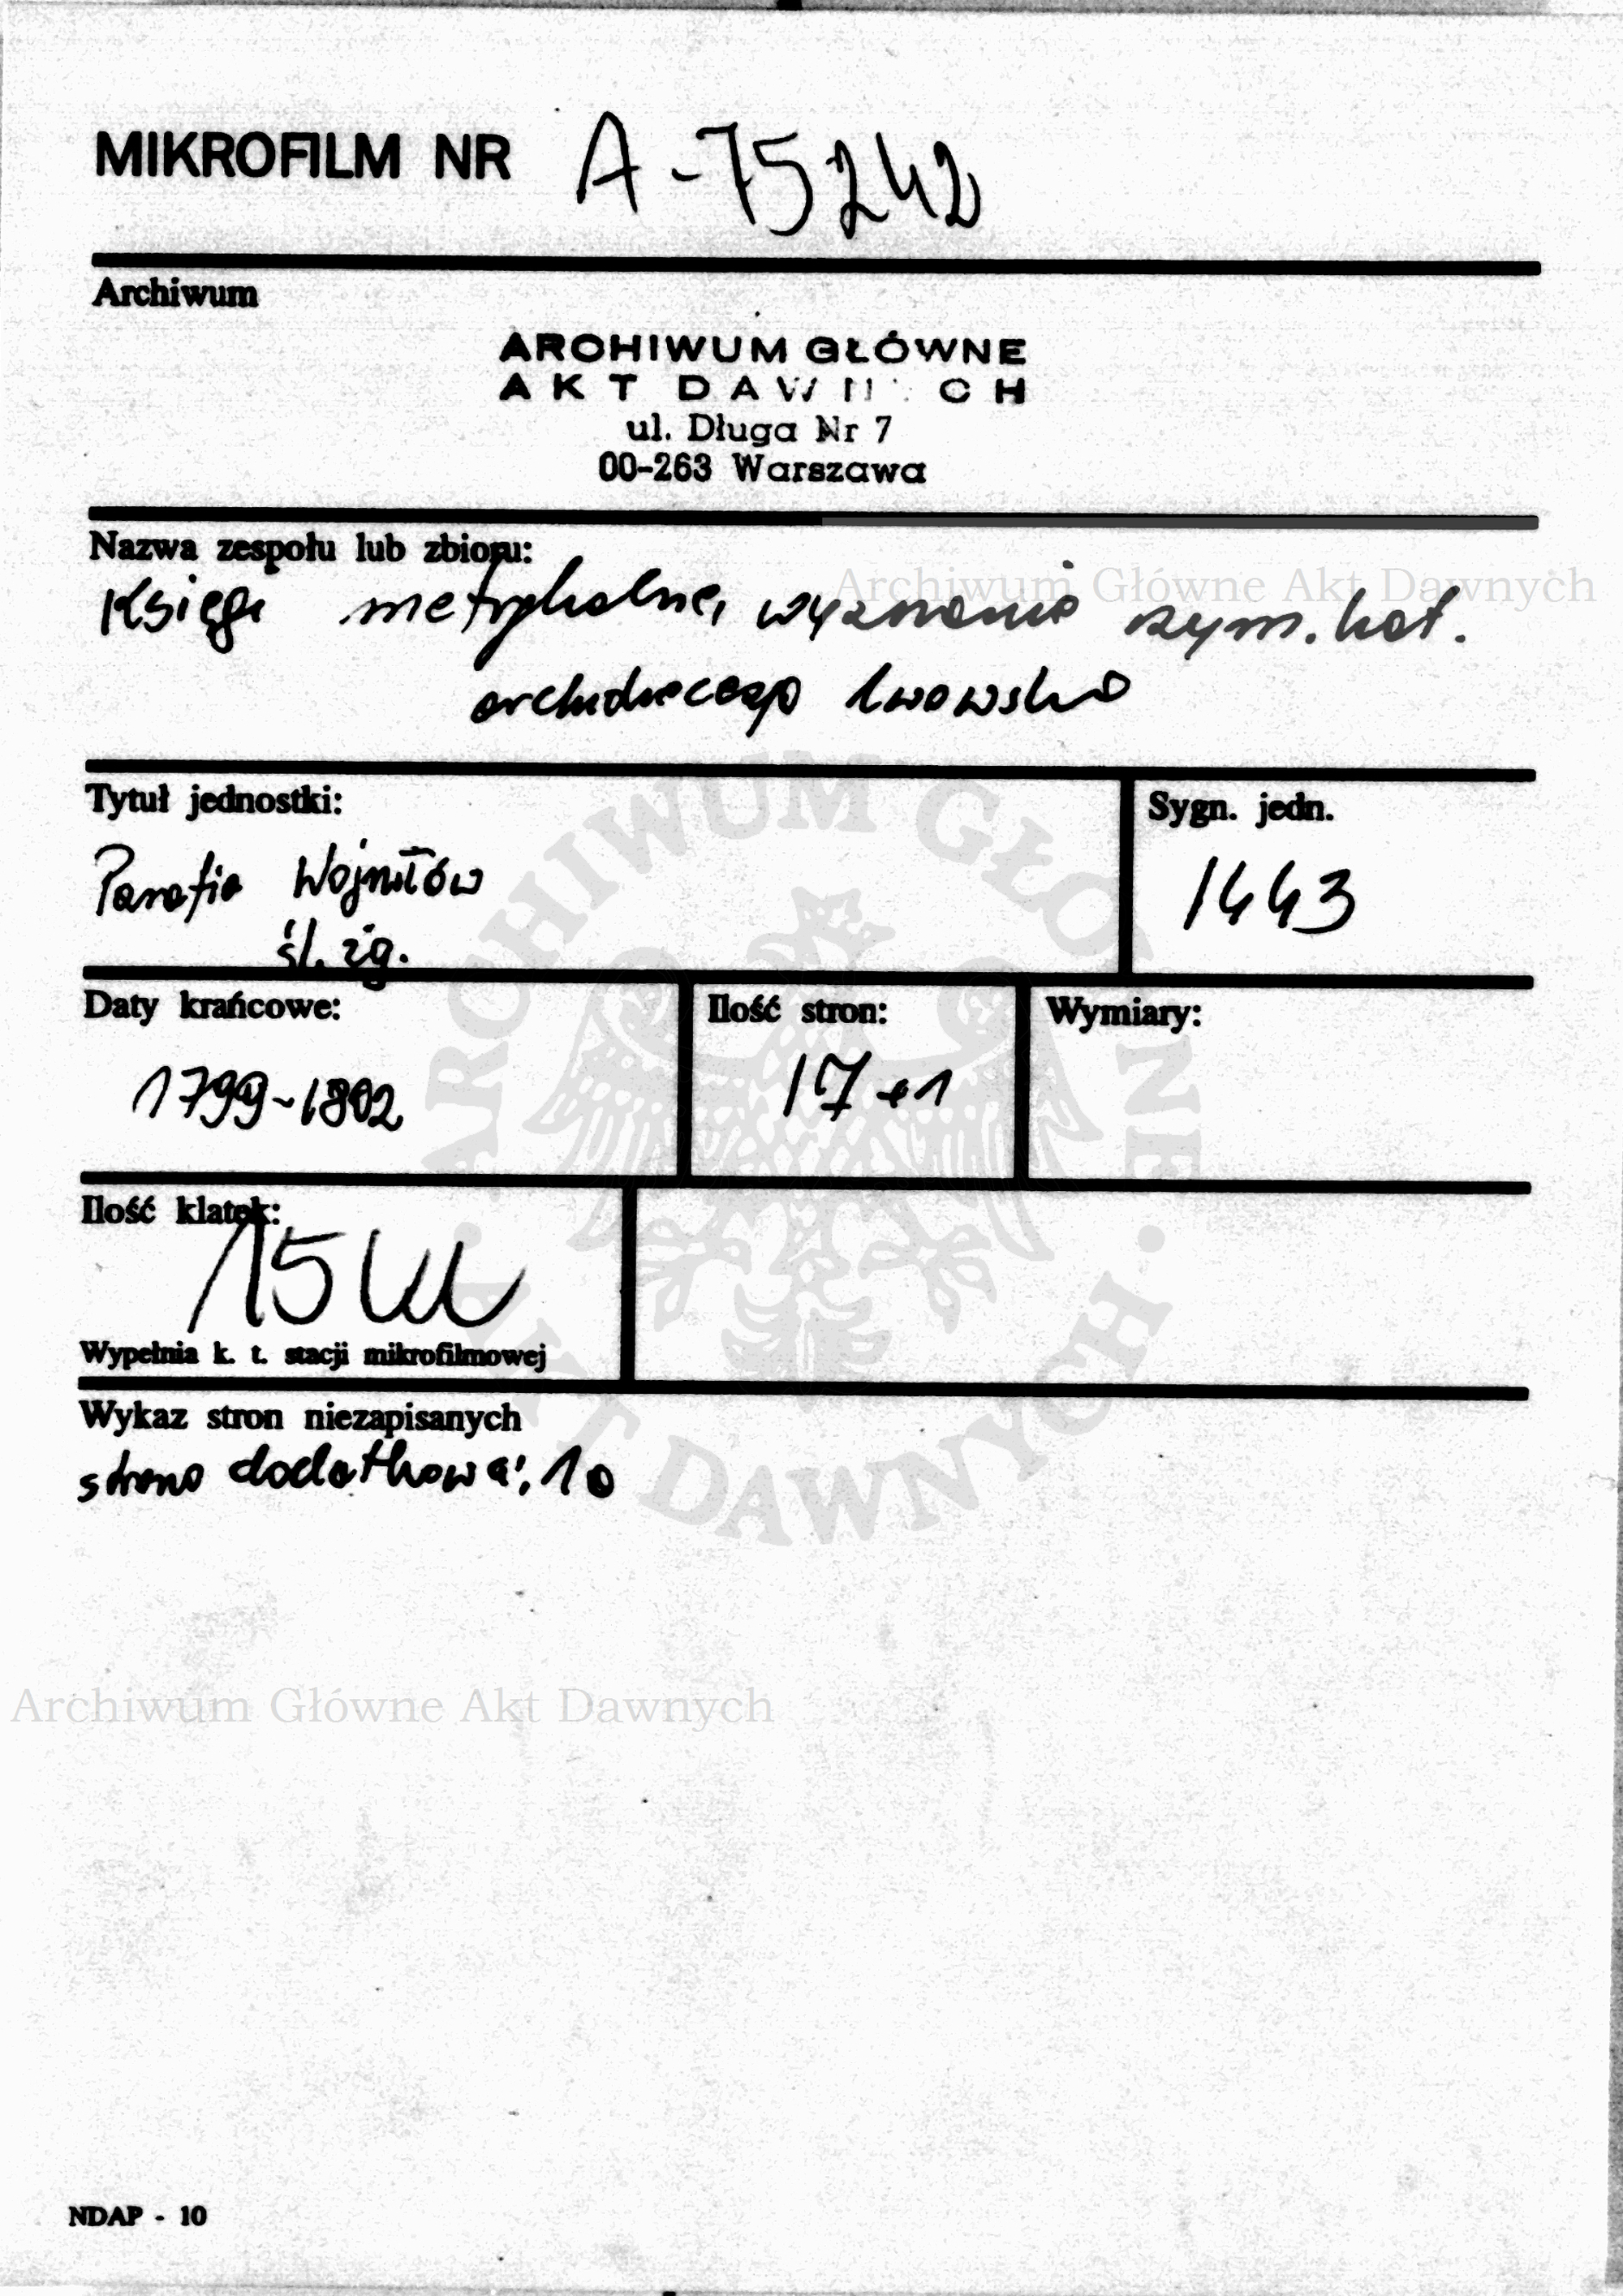 MIKROFILM NR A-75242
Archiwum
ARCHIWUM GŁÓWNE
AKT DAWNYCH
ul. Długa Nr 7
00-263 Warszawa
Nazwa zespołu lub zbioru:
Księgi metrykalne, wyznanie rzym. kat.
archidiecezja lwowska
Archiwum Główne Akt Dawnych
Tytuł jednostki:
Parafia Wojniłów
śl. zg.
Sygn. jedn.
1443
Daty krańcowe:
1799-1802
Ilość stron:
17+1
Wymiary:
Ilość klatek:
15 kl
Wypełnia k. t. stacji mikrofilmowej
Wykaz stron niezapisanych
strona dodatkowa: 1a
ARCHIWUM GŁÓWNE · AKT DAWNYCH ·
Archiwum Główne Akt Dawnych
NDAP - 10